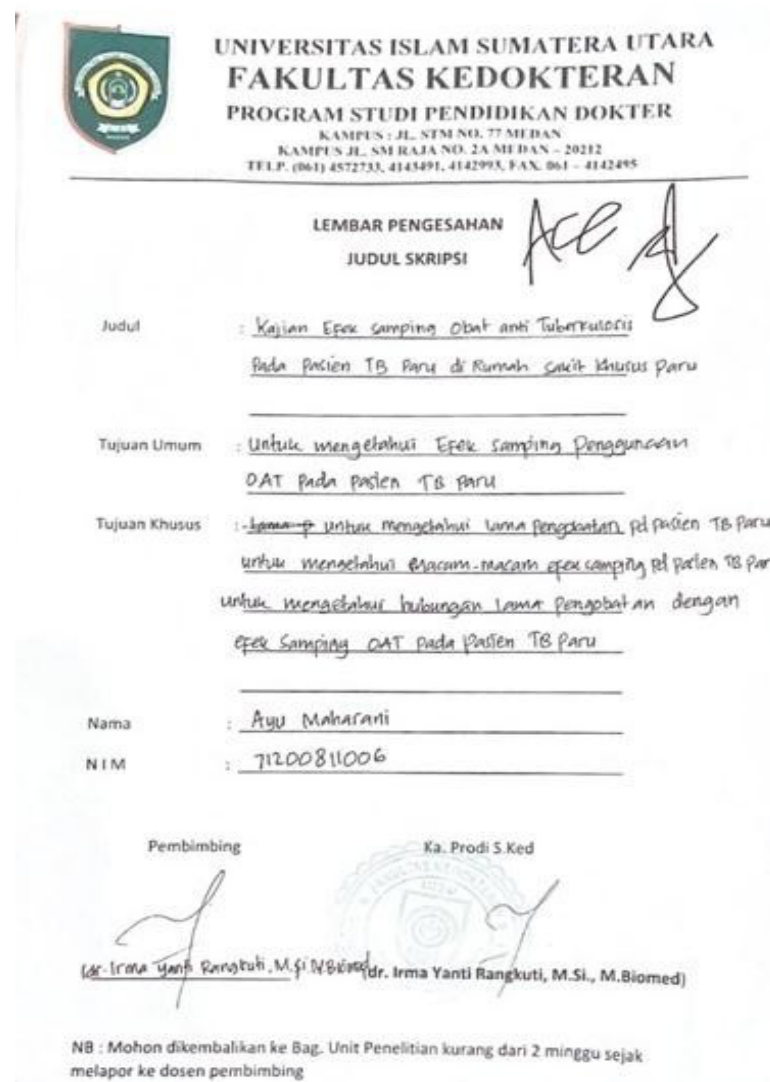 UNIVERSITAS ISLAM SUMATERA UTARA
FAKULTAS KEDOKTERAN
PROGRAM STUDI PENDIDIKAN DOKTER
KAMPUS : JL. STM NO. 77 MEDAN
KAMPUS JL. SM RAJA NO. 2A MEDAN - 20212
TELP. (061) 4572733, 4143491, 4142993, FAX. 061 - 4142495
LEMBAR PENGESAHAN
JUDUL SKRIPSI
Acc
Judul : Kajian Efek samping Obat anti Tuberkulosis
Pada Pasien TB Paru di Rumah Sakit Khusus Paru
Tujuan Umum : Untuk mengetahui Efek samping Penggunaan
OAT pada pasien TB Paru
Tujuan Khusus : - untuk mengetahui lama pengobatan pd pasien TB Paru
untuk mengetahui Macam-macam efek samping pd pasien TB Par
untuk mengetahui hubungan lama pengobatan dengan
efek samping OAT pada pasien TB Paru
Nama : Ayu Maharani
NIM : 71200811006
Pembimbing Ka. Prodi S.Ked
(dr. Irma Yanti Rangkuti, M.Si M.Biomed) (dr. Irma Yanti Rangkuti, M.Si., M.Biomed)
NB : Mohon dikembalikan ke Bag. Unit Penelitian kurang dari 2 minggu sejak
melapor ke dosen pembimbing